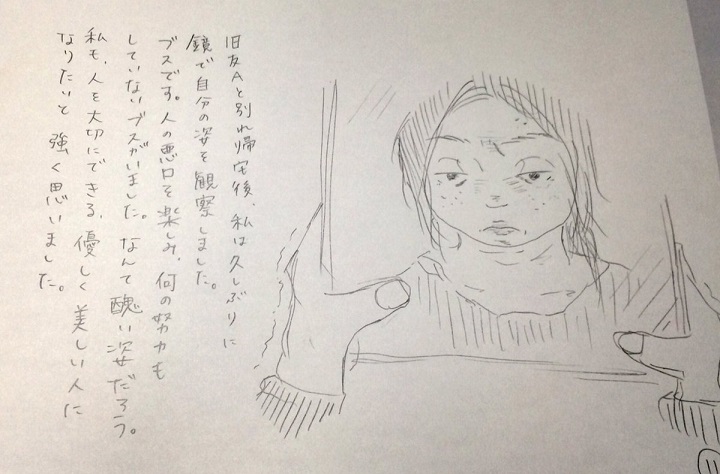 旧友Aと別れ帰宅後、私は久しぶりに
鏡で自分の姿を観察しました。
ブスです。人の悪口を楽しみ、何の努力も
していないブスがいました。なんて醜い姿だろう。
私も、人を大切にできる、優しく美しい人に
なりたいと強く思いました。